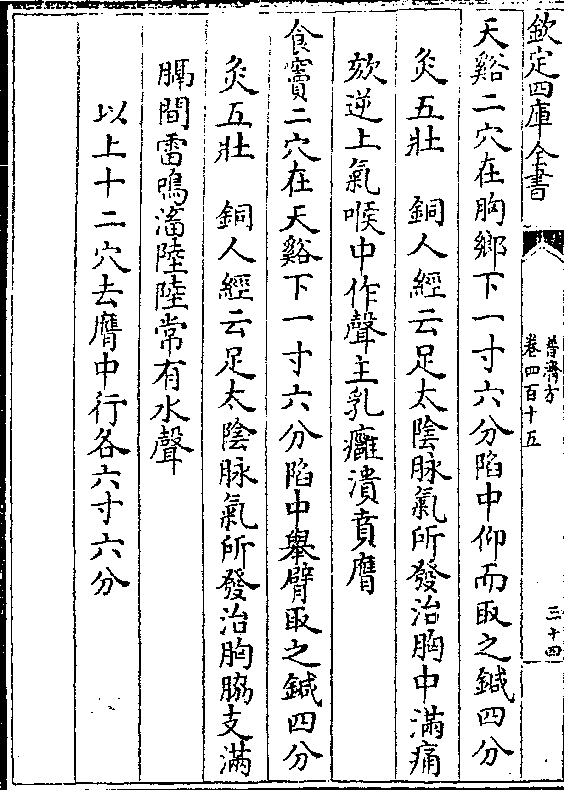 欽定四庫全書
普濟方
卷四百十五
三十四
天谿二穴在胸鄉下一寸六分陷中仰而取之鍼四分
灸五壯　銅人經云足太陰脉氣所發治胸中滿痛
欬逆上氣喉中作聲主乳癰潰賁膺
食竇二穴在天谿下一寸六分陷中舉臂取之鍼四分
灸五壯　銅人經云足太陰脉氣所發治胸脇支滿
膈間雷鳴滀陸陸常有水聲
以上十二穴去膺中行各六寸六分